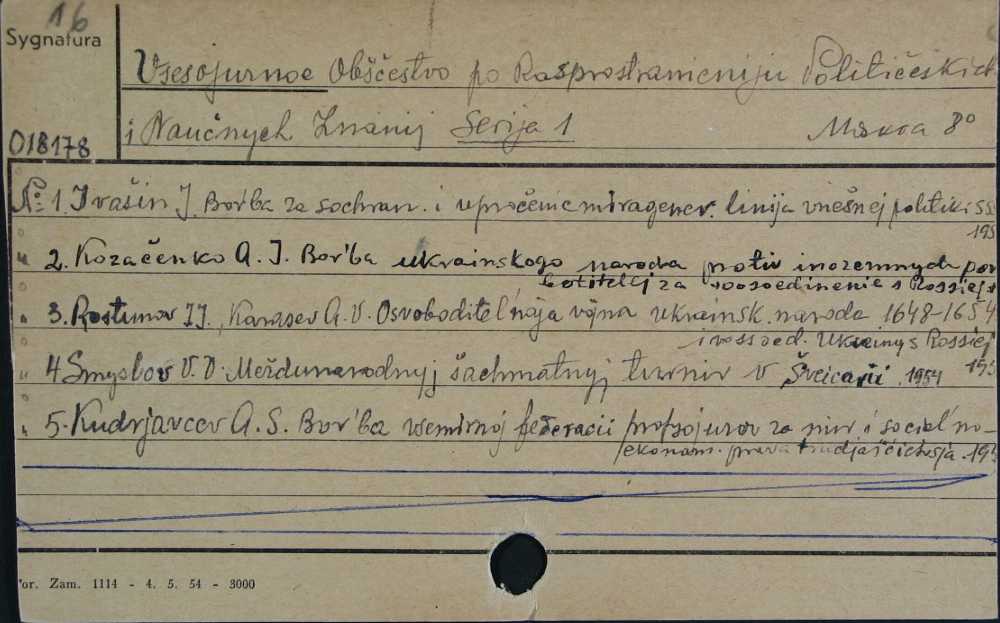 16
Sygnatura
Vsesojurnoe Obščestvo po Rasprostranieniju Političeskich
i Naučnych Znanij Serija 1 Moskva 8°
018178
№ 1. Ivašin J. Bor'ba za sochran. i upročenie mira gener. linija vnešnej politiki SS
195
" 2. Kozačenko A. J. Bor'ba ukrainskogo naroda protiv inozemnych por
botitelej za vossoedinenie s Rossiej
" 3. Rostunov I I., Karasev A. V. Osvoboditel'naja vojna ukrainsk. naroda 1648-1654
i vossoed. Ukrainy s Rossiej
195
" 4. Smyslov V. V. Meždunarodnyj šachmatnyj turnir v Šveicarii. 1954
" 5. Kudrjavcev A. S. Bor'ba vsemirnoj federacii profsojuzov za mir i social'no-
ekonom. prava trudjaščichsja. 195
or. Zam. 1114 - 4. 5. 54 - 3000